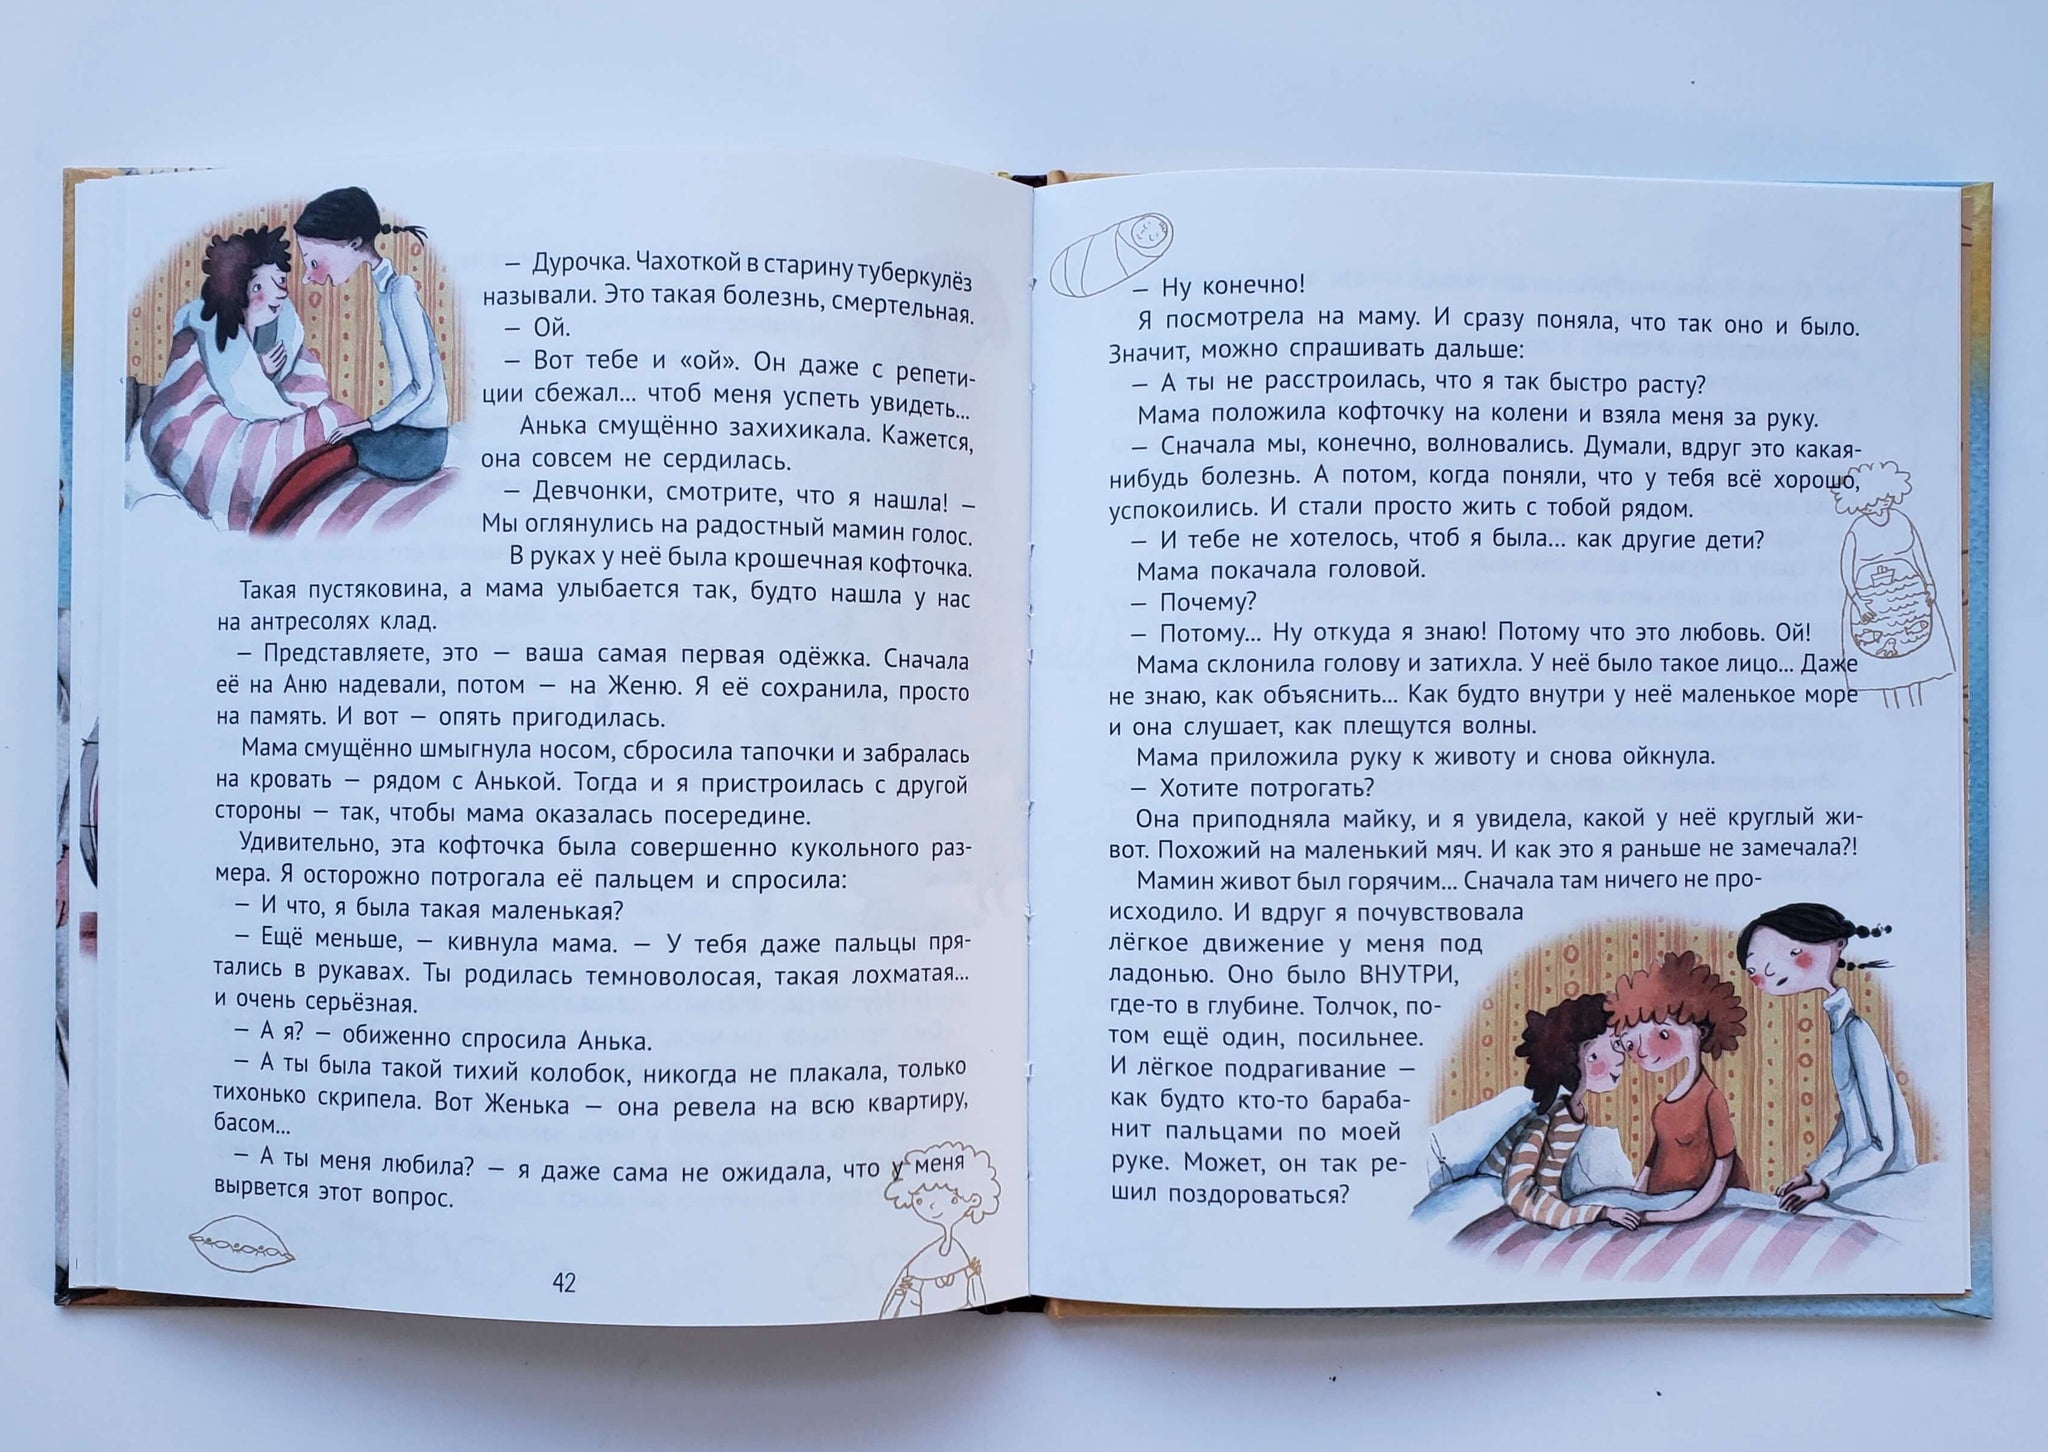 — Дурочка. Чахоткой в старину туберкулёз
называли. Это такая болезнь, смертельная.
— Ой.
— Вот тебе и «ой». Он даже с репети-
ции сбежал... чтоб меня успеть увидеть...
Анька смущённо захихикала. Кажется,
она совсем не сердилась.
— Девчонки, смотрите, что я нашла! —
Мы оглянулись на радостный мамин голос.
В руках у неё была крошечная кофточка.
Такая пустяковина, а мама улыбается так, будто нашла у нас
на антресолях клад.
— Представляете, это — ваша самая первая одёжка. Сначала
её на Аню надевали, потом — на Женю. Я её сохранила, просто
на память. И вот — опять пригодилась.
Мама смущённо шмыгнула носом, сбросила тапочки и забралась
на кровать — рядом с Анькой. Тогда и я пристроилась с другой
стороны — так, чтобы мама оказалась посередине.
Удивительно, эта кофточка была совершенно кукольного раз-
мера. Я осторожно потрогала её пальцем и спросила:
— И что, я была такая маленькая?
— Ещё меньше, — кивнула мама. — У тебя даже пальцы пря-
тались в рукавах. Ты родилась темноволосая, такая лохматая...
и очень серьёзная.
— А я? — обиженно спросила Анька.
— А ты была такой тихий колобок, никогда не плакала, только
тихонько скрипела. Вот Женька — она ревела на всю квартиру,
басом...
— А ты меня любила? — я даже сама не ожидала, что у меня
вырвется этот вопрос.
42
— Ну конечно!
Я посмотрела на маму. И сразу поняла, что так оно и было.
Значит, можно спрашивать дальше:
— А ты не расстроилась, что я так быстро расту?
Мама положила кофточку на колени и взяла меня за руку.
— Сначала мы, конечно, волновались. Думали, вдруг это какая-
нибудь болезнь. А потом, когда поняли, что у тебя всё хорошо,
успокоились. И стали просто жить с тобой рядом.
— И тебе не хотелось, чтоб я была... как другие дети?
Мама покачала головой.
— Почему?
— Потому... Ну откуда я знаю! Потому что это любовь. Ой!
Мама склонила голову и затихла. У неё было такое лицо... Даже
не знаю, как объяснить... Как будто внутри у неё маленькое море
и она слушает, как плещутся волны.
Мама приложила руку к животу и снова ойкнула.
— Хотите потрогать?
Она приподняла майку, и я увидела, какой у неё круглый жи-
вот. Похожий на маленький мяч. И как это я раньше не замечала?!
Мамин живот был горячим... Сначала там ничего не про-
исходило. И вдруг я почувствовала
лёгкое движение у меня под
ладонью. Оно было ВНУТРИ,
где-то в глубине. Толчок, по-
том ещё один, посильнее.
И лёгкое подрагивание —
как будто кто-то бараба-
нит пальцами по моей
руке. Может, он так ре-
шил поздороваться?